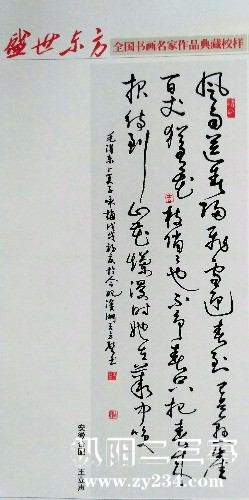 盛世东方 全国书画名家作品典藏校样
风雨送春归飞雪迎春到已是悬崖
百丈冰犹有花枝俏俏也不争春只把春来
报待到山花烂漫时她在丛中笑
毛泽东卜算子咏梅戊戌
安徽 王立声
枞阳二三事
www.zy234.com